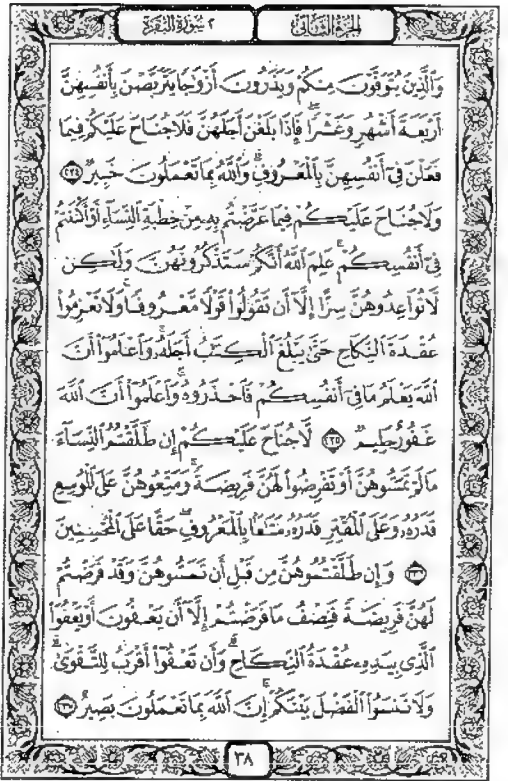 الجزء الثاني
٢ سورة البقرة
وَٱلَّذِينَ يُتَوَفَّوۡنَ مِنكُمۡ وَيَذَرُونَ أَزۡوَٰجٗا يَتَرَبَّصۡنَ بِأَنفُسِهِنَّ
أَرۡبَعَةَ أَشۡهُرٖ وَعَشۡرٗاۖ فَإِذَا بَلَغۡنَ أَجَلَهُنَّ فَلَا جُنَاحَ عَلَيۡكُمۡ فِيمَا
فَعَلۡنَ فِيٓ أَنفُسِهِنَّ بِٱلۡمَعۡرُوفِۗ وَٱللَّهُ بِمَا تَعۡمَلُونَ خَبِيرٞ ٢٣٤
وَلَا جُنَاحَ عَلَيۡكُمۡ فِيمَا عَرَّضۡتُم بِهِۦ مِنۡ خِطۡبَةِ ٱلنِّسَآءِ أَوۡ أَكۡنَنتُمۡ
فِيٓ أَنفُسِكُمۡۚ عَلِمَ ٱللَّهُ أَنَّكُمۡ سَتَذۡكُرُونَهُنَّ وَلَٰكِن
لَّا تُوَاعِدُوهُنَّ سِرًّا إِلَّآ أَن تَقُولُواْ قَوۡلٗا مَّعۡرُوفٗاۚ وَلَا تَعۡزِمُواْ
عُقۡدَةَ ٱلنِّكَاحِ حَتَّىٰ يَبۡلُغَ ٱلۡكِتَٰبُ أَجَلَهُۥۚ وَٱعۡلَمُوٓاْ أَنَّ
ٱللَّهَ يَعۡلَمُ مَا فِيٓ أَنفُسِكُمۡ فَٱحۡذَرُوهُۚ وَٱعۡلَمُوٓاْ أَنَّ ٱللَّهَ
غَفُورٌ حَلِيمٞ ٢٣٥ لَّا جُنَاحَ عَلَيۡكُمۡ إِن طَلَّقۡتُمُ ٱلنِّسَآءَ
مَا لَمۡ تَمَسُّوهُنَّ أَوۡ تَفۡرِضُواْ لَهُنَّ فَرِيضَةٗۚ وَمَتِّعُوهُنَّ عَلَى ٱلۡمُوسِعِ
قَدَرُهُۥ وَعَلَى ٱلۡمُقۡتِرِ قَدَرُهُۥ مَتَٰعَۢا بِٱلۡمَعۡرُوفِۖ حَقًّا عَلَى ٱلۡمُحۡسِنِينَ
٢٣٦ وَإِن طَلَّقۡتُمُوهُنَّ مِن قَبۡلِ أَن تَمَسُّوهُنَّ وَقَدۡ فَرَضۡتُمۡ
لَهُنَّ فَرِيضَةٗ فَنِصۡفُ مَا فَرَضۡتُمۡ إِلَّآ أَن يَعۡفُونَ أَوۡ يَعۡفُوَاْ
ٱلَّذِي بِيَدِهِۦ عُقۡدَةُ ٱلنِّكَاحِۚ وَأَن تَعۡفُوٓاْ أَقۡرَبُ لِلتَّقۡوَىٰۚ
وَلَا تَنسَوُاْ ٱلۡفَضۡلَ بَيۡنَكُمۡۚ إِنَّ ٱللَّهَ بِمَا تَعۡمَلُونَ بَصِيرٌ ٢٣٧
٣٨